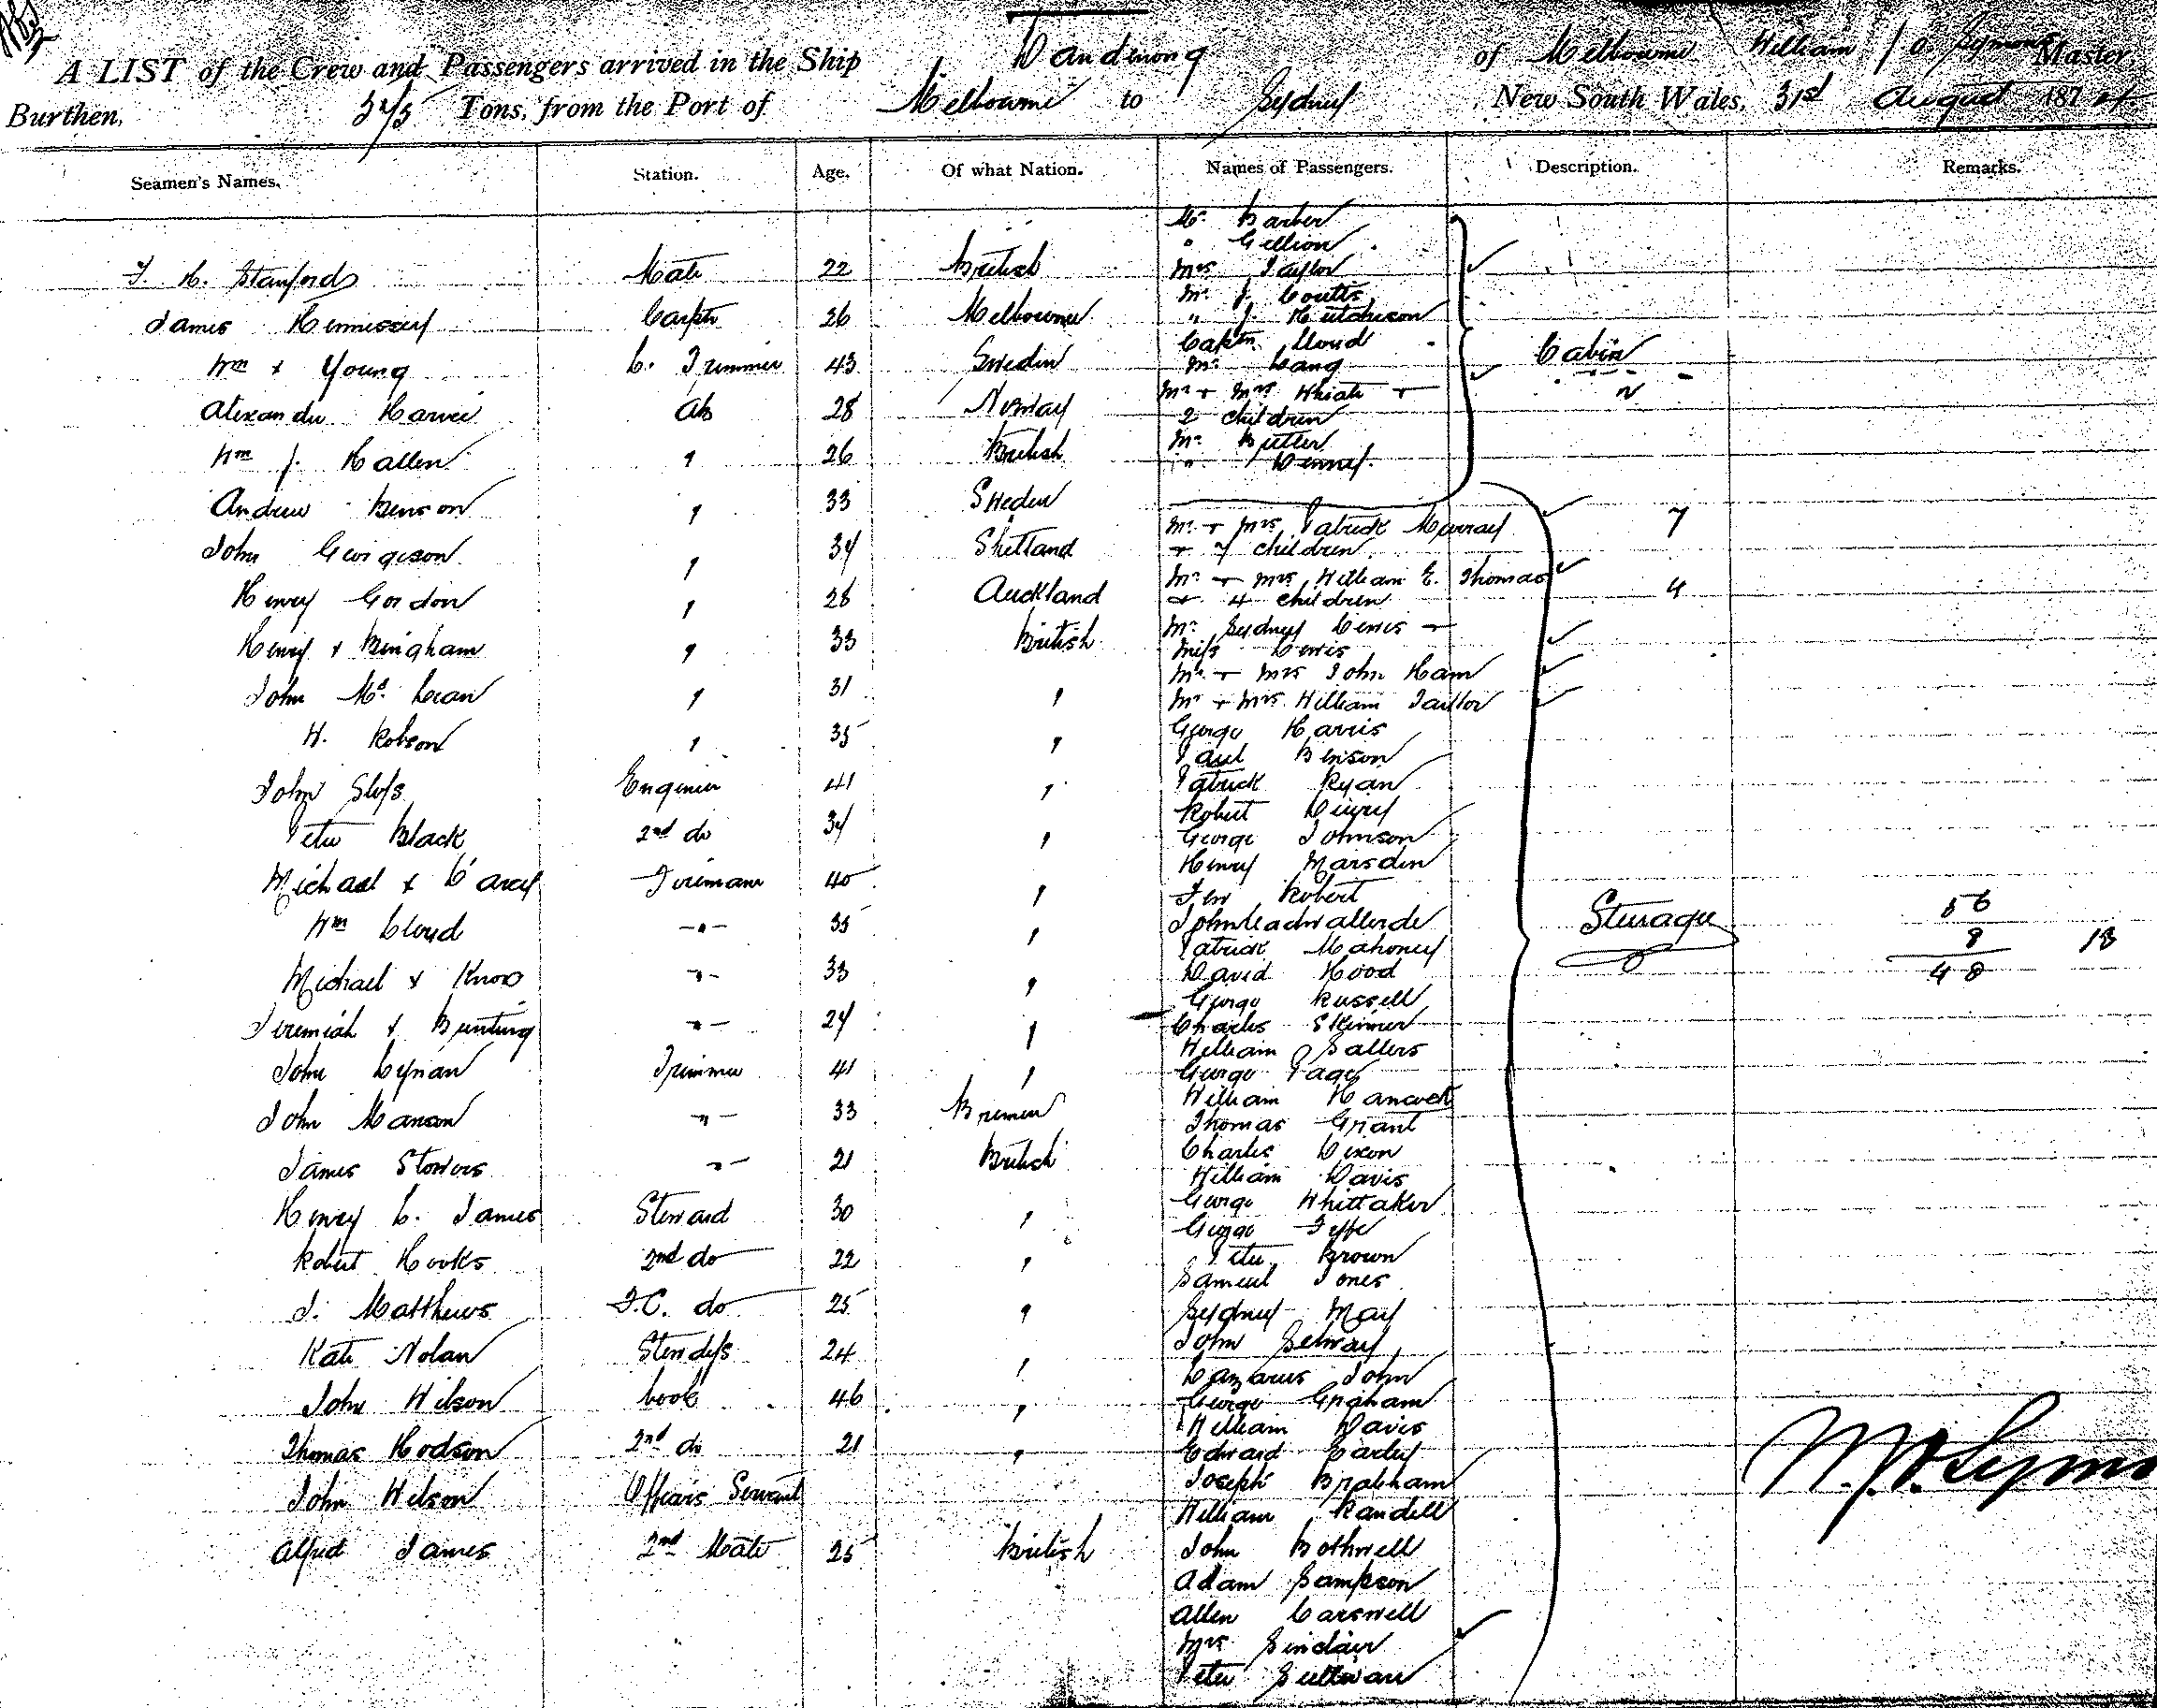 A LIST of the Crew and Passengers arrived in the Ship Dandenong of Melbourne William Master,
Burthen, Tons, from the Port of Melbourne to Sydney New South Wales, 31st August 1874
Seamen's Names. Station. Age. Of what Nation. Names of Passengers. Description. Remarks.
Mr. Barber
" Gillion
F. H. Stanford Mate 22 British Mrs Taylor
Mr. J. Coutts
James Hennessey Carptr 26 Melbourne " J. Hutchison
Captn. Lloyd
Wm + Young L. Trimmer 43 Sweden Mr. Lang Cabin
Mr + Mrs White +
Alexander Harvie AB 28 Norway 2 children
Mr. Butler
Wm J. Hallen " 26 British " Denney
Andrew Benson " 33 Sweden
Mr + Mrs Patrick Murray 7
John Georgeson " 34 Shetland + 7 children
Mr + Mrs William E. Thomas
Henry Gordon " 28 Auckland + 4 children 4
Mr Sydney Lewis +
Henry + Bingham " 33 British Miss Lewis
Mr + Mrs John Ham
John McLean " 31 " Mr + Mrs William Taillor
George Harris
H. Robson " 35 " Paul Benson
John Sloss Engineer 41 " Patrick Ryan
Robert
Peter Black 2nd do 34 " George Johnson
Henry Marsden
Michael + Darcy Fireman 40 " Robert
Wm Cloud -"- 35 " John Steerage 56
Patrick Mahoney 8 13
Michael + Knox "- 33 " David Hood 48
George Russell
Jeremiah + Bunting "- 24 " Charles Skinner
William Sallers
John Lynan Trimmer 41 " George Page
William Hancock
John Manson "- 33 Bremen Thomas Grant
Charles Dixon
James Stowers "- 21 British William Davis
George Whittaker
Henry C. James Steward 30 " George Fyffe
Robert Hooks 2nd do 22 " Peter Brown
Samuel Jones
J. Matthews F.C. do 25 " Sydney May
John Selway
Kate Nolan Stewdess 24 " Lazarus John
John Wilson Cook 46 " George Graham
William Davis
Thomas Hodson 2nd do 21 " Edward Earley
Joseph Brabham
John Wilson Officers Servant William Randell
Alfred James 2nd Mate 25 British John Bothwell
Adam Sampson
Allen Carswell
Mrs Sinclair
Peter Sullivan